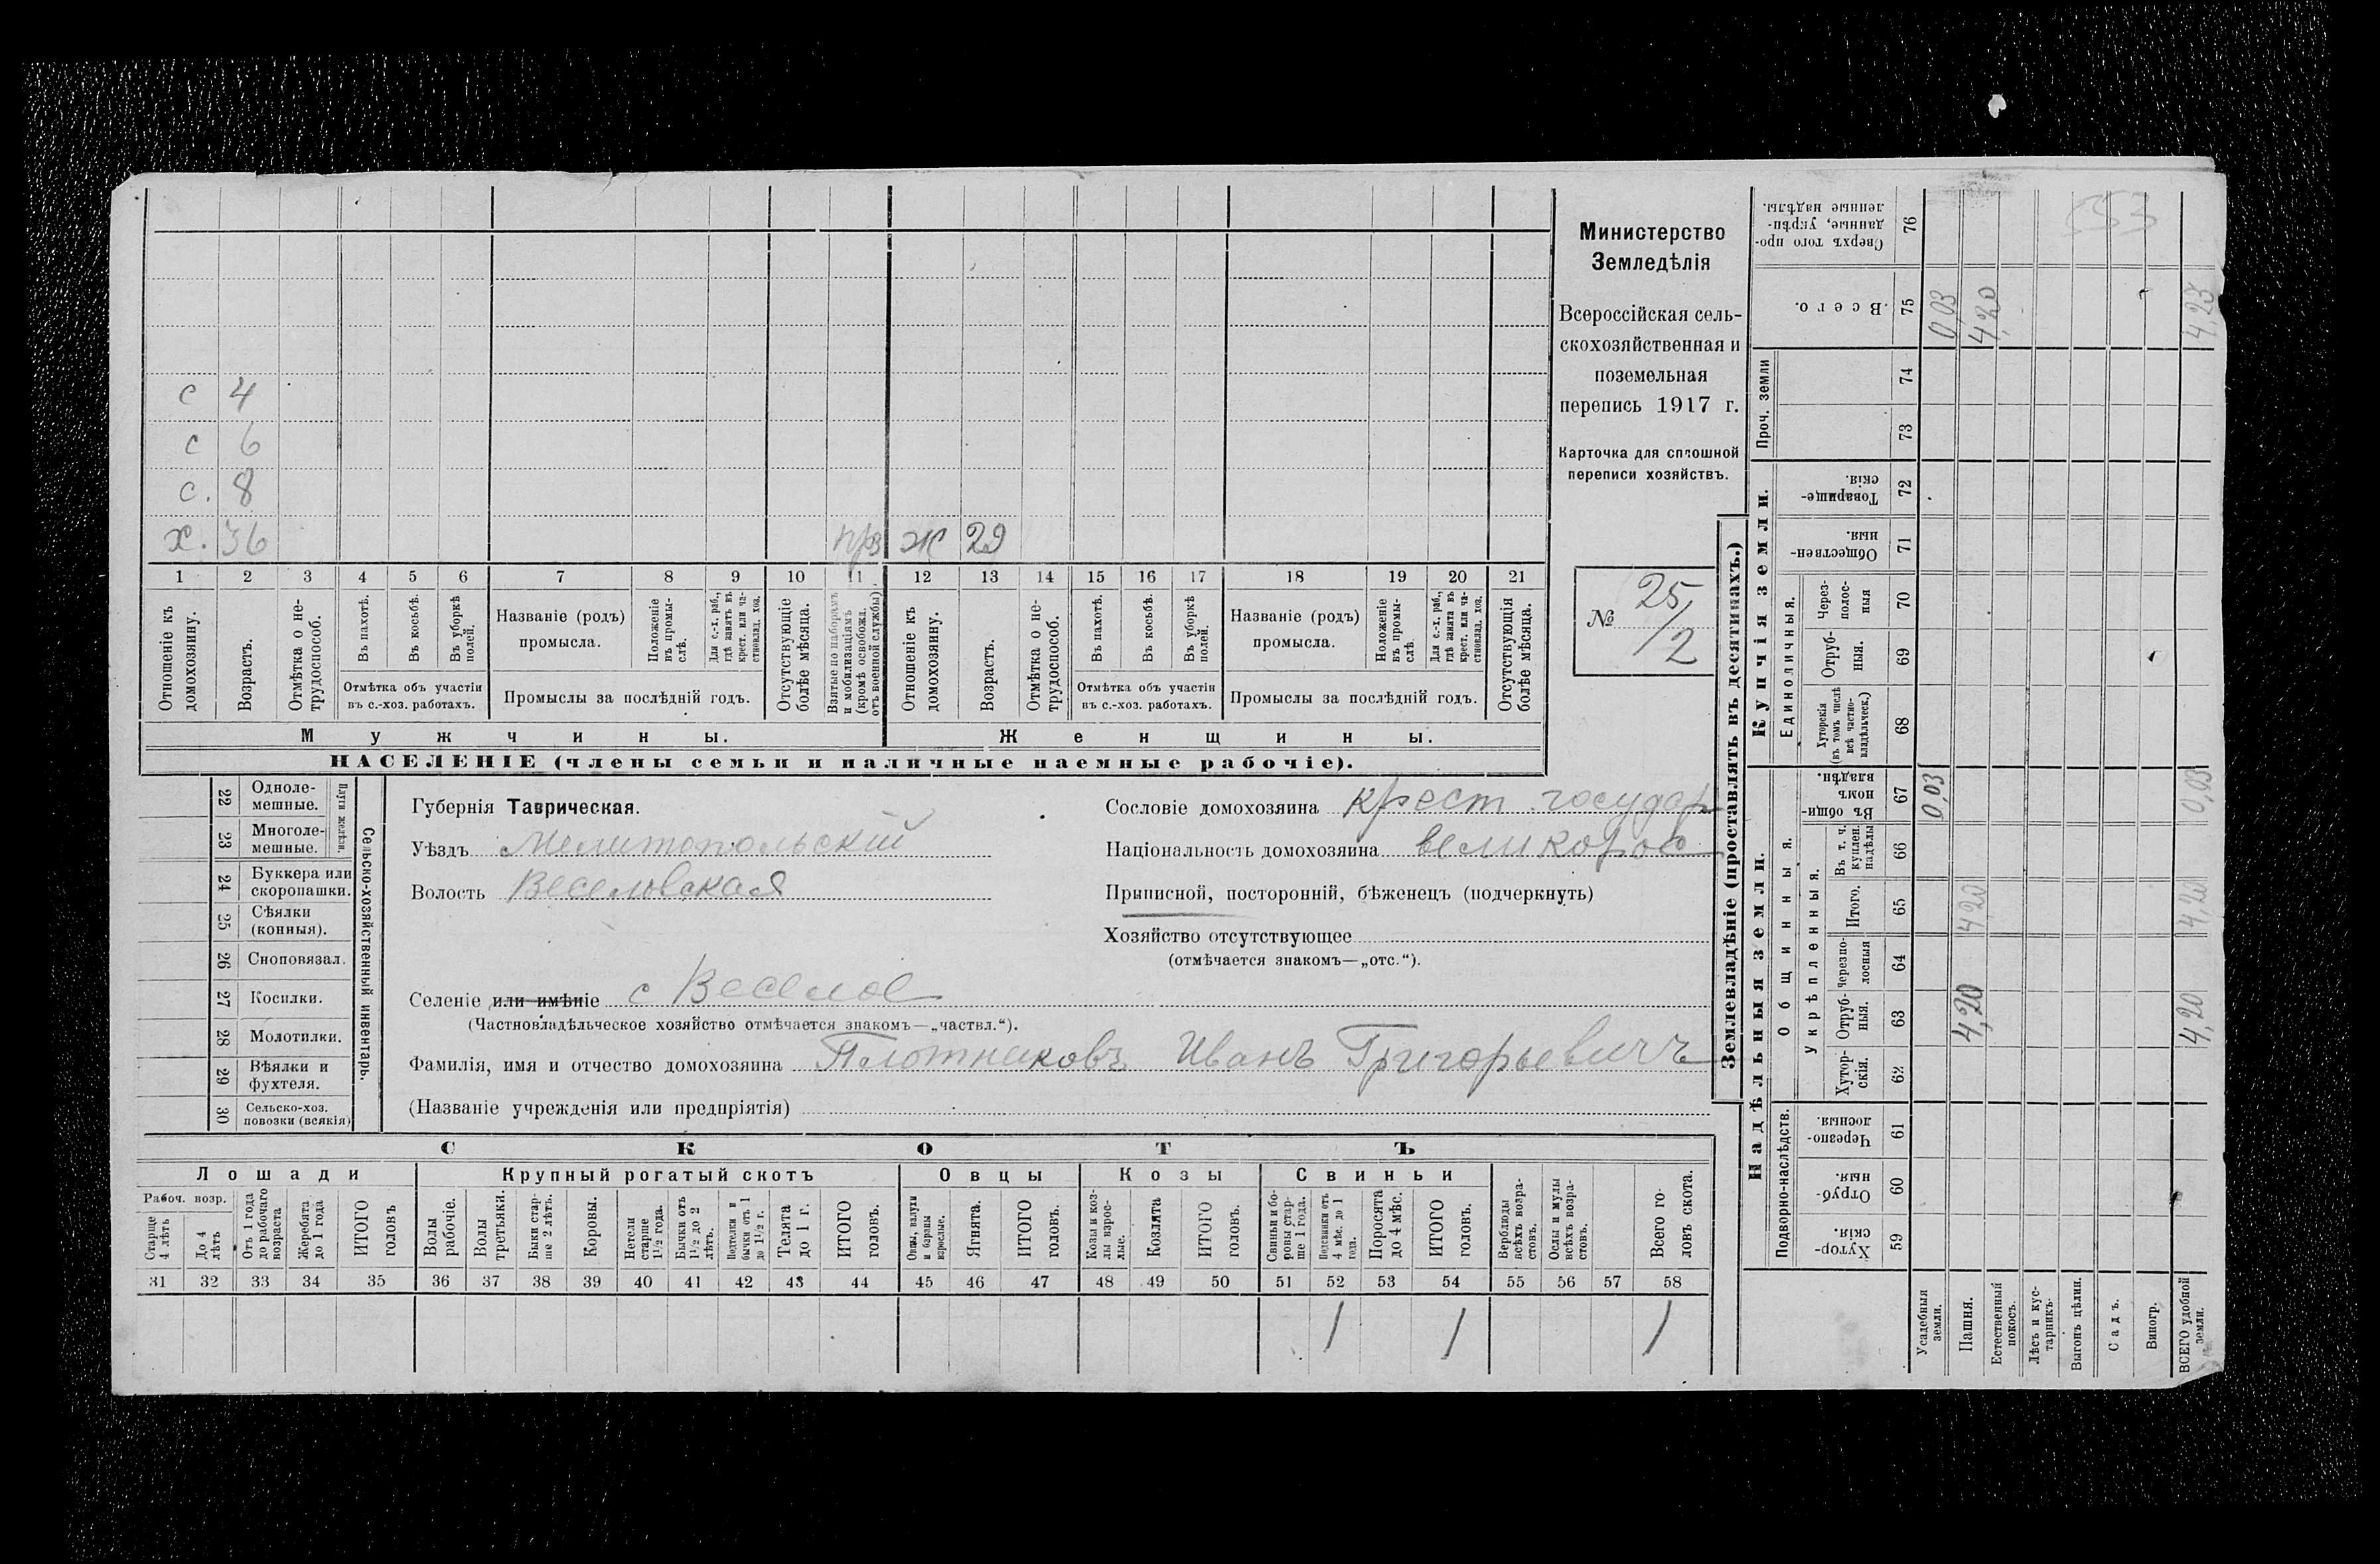 с 4
с 6
с. 8
х. 36 прз ж 29
1 2 3 4 5 6 7 8 9 10 11 12 13 14 15 16 17 18 19 20 21
Отношеніе къ домохозяину.
Возрастъ.
Отмѣтка о не-трудоспособ.
Въ пахотѣ.
Въ косьбѣ.
Въ уборкѣ полей.
Отмѣтка объ участіи
въ с.-хоз. работахъ.
Названіе (родъ)
промысла.
Положеніе въ промы-слѣ.
Для с.-х. раб., гдѣ занятъ въ крест. или ча-стновлад. хоз.
Промыслы за послѣдній годъ.
Отсутствующіе болѣе мѣсяца.
Взятые по наборамъ и мобилизаціямъ (кромѣ освобожд. отъ военной службы)
Отношеніе къ домохозяину.
Возрастъ.
Отмѣтка о не-трудоспособ.
Въ пахотѣ.
Въ косьбѣ.
Въ уборкѣ полей.
Отмѣтка объ участіи
въ с.-хоз. работахъ.
Названіе (родъ)
промысла.
Положеніе въ промы-слѣ
Для с.-х. раб., гдѣ занята въ крест. или ча-стновлад. хоз.
Промыслы за послѣдній годъ.
Отсутствующія болѣе мѣсяца.
Мужчины. Женщины.
НАСЕЛЕНІЕ (члены семьи и наличные наемные рабочіе).
Министерство
Земледѣлія
Всероссійская сель-
скохозяйственная и
поземельная
перепись 1917 г.
Карточка для сплошной
переписи хозяйствъ.
№ 25/2
22 Одноле-мешные.
23 Многоле-мешные.
Плуги желѣзн.
24 Буккера или скоропашки.
25 Сѣялки (конныя).
26 Сноповязал.
27 Косилки.
28 Молотилки.
29 Вѣялки и фухтеля.
30 Сельско-хоз. повозки (всякія)
Сельско-хозяйственный инвентарь.
Губернія Таврическая.
Уѣздъ Мелитопольскій
Волость Веселовская
Сословіе домохозяина крест. государ
Національность домохозяина великорос
Приписной, посторонній, бѣженецъ (подчеркнуть)
Хозяйство отсутствующее
(отмѣчается знакомъ—„отс.“).
Селеніе или имѣніе с Веселое
(Частновладѣльческое хозяйство отмѣчается знакомъ—„частвл.“).
Фамилія, имя и отчество домохозяина Плотниковъ Иванъ Григорьевичъ
(Названіе учрежденія или предпріятія)
СКОТЪ
Лошади Крупный рогатый скотъ Овцы Козы Свиньи
Рабоч. возр.
Старше 4 лѣтъ
До 4 лѣтъ
Отъ 1 года до рабочаго возраста
Жеребята до 1 года
ИТОГО головъ
Волы рабочіе.
Волы третьяки.
Быки стар-ше 2 лѣтъ.
Коровы.
Нетели старше 1½ года.
Бычки отъ 1½ до 2 лѣтъ.
Подтелки и бычки отъ 1 до 1½ г.
Телята до 1 г.
ИТОГО головъ.
Овцы, валухи и бараны взрослые.
Ягнята.
ИТОГО головъ.
Козы и коз-лы взрос-лые.
Козлята
ИТОГО головъ.
Свиньи и бо-ровы стар-ше 1 года.
Подсвинки отъ 4 мѣс. до 1 года.
Поросята до 4 мѣс.
ИТОГО головъ.
Верблюды всѣхъ возра-стовъ.
Ослы и мулы всѣхъ возра-стовъ.
Всего го-ловъ скота.
31 32 33 34 35 36 37 38 39 40 41 42 43 44 45 46 47 48 49 50 51 52 53 54 55 56 57 58
1 1 1
Землевладѣніе (проставлять въ десятинахъ.)
Надѣльныя земли. Купчія земли. Проч. земли
Подворно-наслѣдств. Общинныя. Единоличныя.
Укрѣпленныя.
Хутор-скія. 59
Отруб-ныя. 60
Черезпо-лосныя. 61
Хутор-скія. 62
Отруб-ныя. 63
Черезпо-лосныя 64
Итого. 65
Въ т. ч. куплен. надѣлы 66
Въ общи-номъ владѣн. 67
Хуторскія (въ томъ числѣ всѣ частно-владѣльческ.) 68
Отруб-ныя. 69
Через-полос-ныя 70
Обществен-ныя. 71
Товарище-скія. 72
73
74
Всего. 75
Сверхъ того про-данные, укрѣп-ленные надѣлы. 76
Усадебныя земли. 0,03 0,03
Пашня. 4,20 4,20 4,20
Естественный покосъ.
Лѣсъ и кус-тарникъ.
Выгонъ цѣлин.
Садъ.
Виногр.
ВСЕГО удобной земли. 4,20 4,20 0,03 4,23